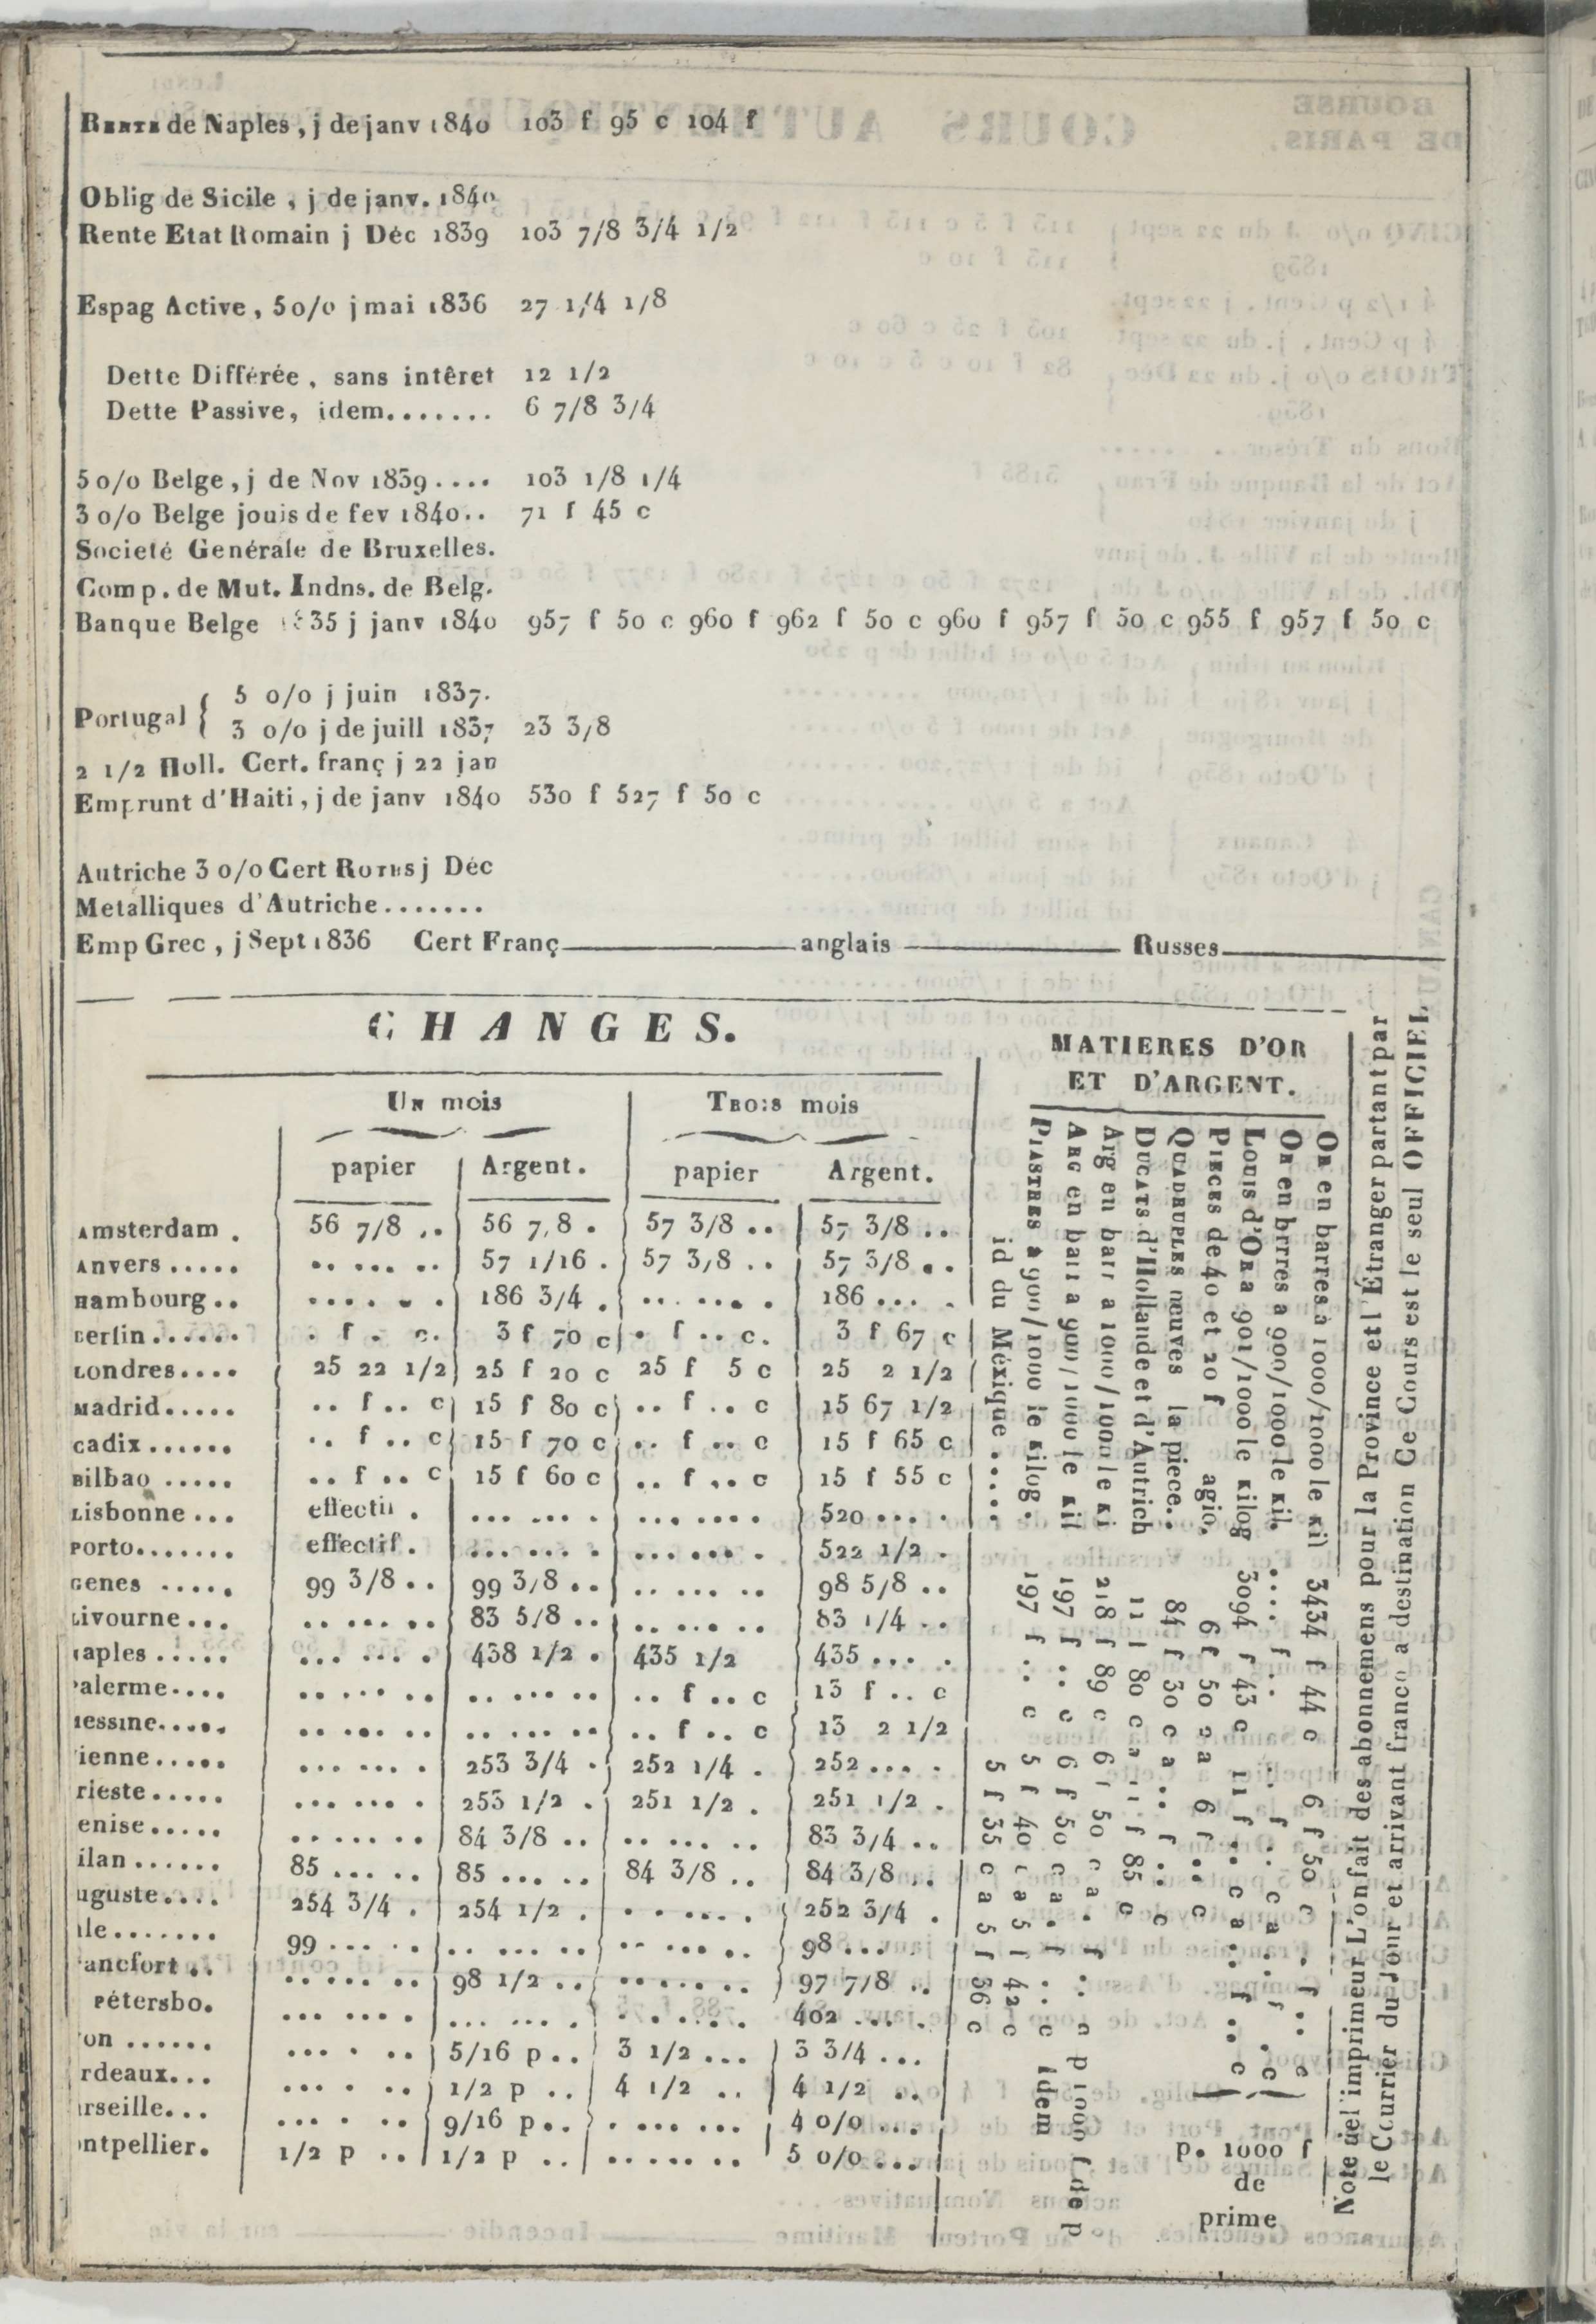 RENTE de Naples, j de janv 1840 103 f 95 c 104 f
Oblig de Sicile, j de janv. 1840
Rente Etat Romain j Déc 1839 103 7/8 3/4 1/2
Espag Active, 5 o/o j mai 1836 27 1/4 1/8
Dette Différée, sans intêret 12 1/2
Dette Passive, idem....... 6 7/8 3/4
5 o/o Belge, j de Nov 1839.... 103 1/8 1/4
3 o/o Belge jouis de fev 1840.. 71 f 45 c
Societé Genérale de Bruxelles.
Comp. de Mut. Indns. de Belg.
Banque Belge 1835 j janv 1840 957 f 50 c 960 f 962 f 50 c 960 f 957 f 50 c 955 f 957 f 50 c
Portugal { 5 o/o j juin 1837.
3 o/o j de juill 1837 23 3/8
2 1/2 Holl. Cert. franç j 22 jan
Emprunt d'Haiti, j de janv 1840 530 f 527 f 50 c
Autriche 3 o/o Cert ROTHS j Déc
Metalliques d'Autriche.......
Emp Grec, j Sept 1836 Cert Franç anglais Russes
CHANGES.
UN mois TROIS mois
papier Argent. papier Argent.
Amsterdam . 56 7/8 .. 56 7/8 . 57 3/8 .. 57 3/8 ..
Anvers ..... .. ... .. 57 1/16 . 57 3/8 .. 57 3/8 ..
Hambourg .. .... . . . 186 3/4 . .. .... . 186 ... .
Berlin ...... . f . c. 3 f 70 c . f .. c. 3 f 67 c
Londres.... 25 22 1/2 25 f 20 c 25 f 5 c 25 2 1/2
Madrid..... .. f .. c 15 f 80 c .. f .. c 15 67 1/2
Cadix ...... .. f .. c 15 f 70 c .. f .. c 15 f 65 c
Bilbao ..... .. f .. c 15 f 60 c .. f .. c 15 f 55 c
Lisbonne ... effectif . ... ... . ... .... 520 ... .
Porto....... effectif . ... ... . ... ... . 522 1/2 .
Genes ..... 99 3/8 .. 99 3/8 .. .. ... .. 98 5/8 ..
Livourne ... .. ... .. 83 5/8 .. .. ... .. 83 1/4 ..
aples ..... ... ... . 438 1/2 . 435 1/2 435 ... .
alerme.... .. ... .. .. ... .. .. f .. c 13 f .. c
essine..... .. ... .. .. ... .. .. f .. c 13 2 1/2
ienne ..... ... ... . 253 3/4 . 252 1/4 . 252 ... .
rieste ..... ... ... . 253 1/2 . 251 1/2 . 251 1/2 .
enise ..... .. ... .. 84 3/8 .. .. ... .. 83 3/4 ..
ilan ...... 85 ... .. 85 ... .. 84 3/8 .. 84 3/8 ..
uguste.... 254 3/4 . 254 1/2 . . . .... . 252 3/4 .
le....... 99 ... . . .. ... .. .. ... .. 98 ... .
ancfort .. .. ... .. 98 1/2 .. .. ... .. 97 7/8 ..
Pétersbo. ... ... . ... ... . . . .... 402 ... .
on ...... ... . .. 5/16 p .. 3 1/2 ... 3 3/4 ...
rdeaux... ... . .. 1/2 p .. 4 1/2 .. 4 1/2 ..
rseille... ... . .. 9/16 p .. . ... ... 4 o/o ...
ntpellier. 1/2 p .. 1/2 p .. ....... 5 o/o ...
MATIERES D'OR
ET D'ARGENT.
OR en barres à 1000/1000 le Kil 3434 f 44 c 6 f 50 c a . f .. c
OR en brrres a 900/1000 le Kil. .... f .. . f .. c a . f . c
LOUIS d'OR a 901/1000 le Kilog 3094 f 43 c 11 f .. c a .. f .. c
PIECES de 40 et 20 f agio, 6 f 50 c a 6 f .. c
QUADRUPLES neuves la piece.. 84 f 30 c a .. f .. c
DUCATS d'Hollande et d'Autrich 11 f 80 c a 11 f 85 c
Arg en barr a 1000/1000 le Ki 218 f 89 c 6 f 50 c a . f . c p 1000 f de p
ARG en barr a 900/1000 le Kil 197 f .. c 6 f 50 c a . f .. c idem
PIASTRES à 900/1000 le Kilog . 197 f .. c 5 f 40 c a 5 f 42 c
id du Méxique ..... 5 f 35 c a 5 f 36 c
p. 1000 f
de
prime
Note de l'imprimeur L'on fait des abonnemens pour la Province et l'Étranger partant par
le Courrier du Jour et arrivant franco a destination Ce Cours est le seul OFFICIEL